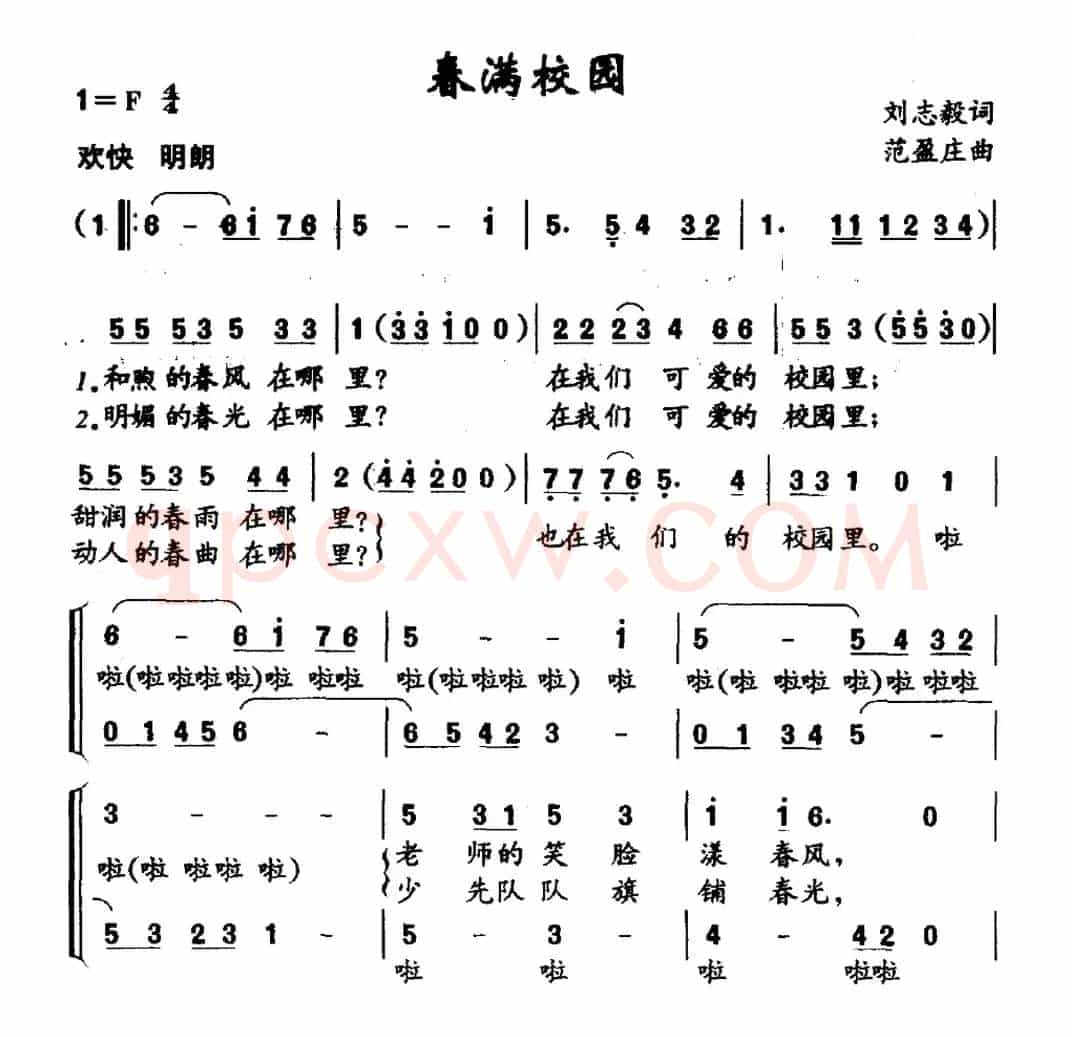 春满校园
1=F 4/4
刘志毅词
欢快 明朗
范盈庄曲
(1 ‖: 6 - 6i 76 | 5 - - i | 5. 5 4 32 | 1. 11 12 34) |
55 535 33 | 1 (33 i0 0) | 22 23 4 66 | 55 3 (55 30) |
1.和煦的春风 在哪 里? 在我们 可 爱的 校园里;
2.明媚的春光 在哪 里? 在我们 可 爱的 校园里;
55 535 44 | 2 (44 200) | 77 76 5. 4 | 331 0 1 |
甜润的春雨 在哪 里? 也在我 们 的 校园里。 啦
动人的春曲 在哪 里?
qpcxw.COM
6 - 6i 76 | 5 - - i | 5 - 54 32 |
啦(啦啦啦啦)啦 啦啦 啦(啦啦啦 啦) 啦 啦(啦 啦啦 啦)啦 啦啦
01 45 6 - | 65 42 3 - | 01 34 5 - |
3 - - - | 5 31 5 3 | i i6. 0 |
啦(啦 啦啦 啦) 老 师的 笑 脸 漾 春风,
少 先队 队 旗 铺 春光,
53 23 1 - | 5 - 3 - | 4 - 42 0 |
啦 啦 啦 啦啦